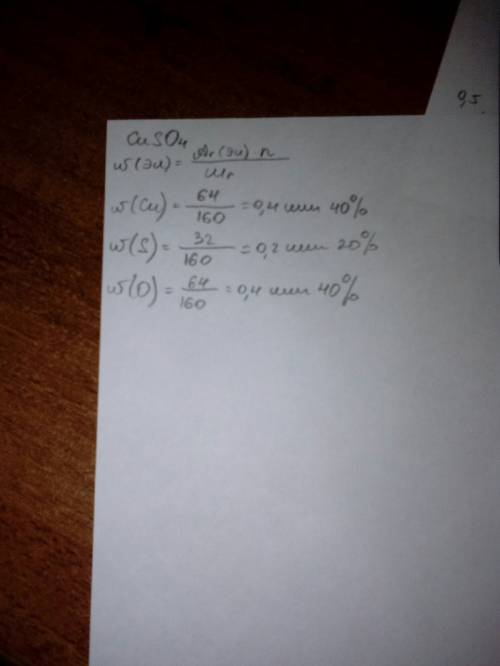 9,5
CuSO4
w(эл) = Ar(эл)·n / Mr
w(Cu) = 64/160 = 0,4 или 40%
w(S) = 32/160 = 0,2 или 20%
w(O) = 64/160 = 0,4 или 40%